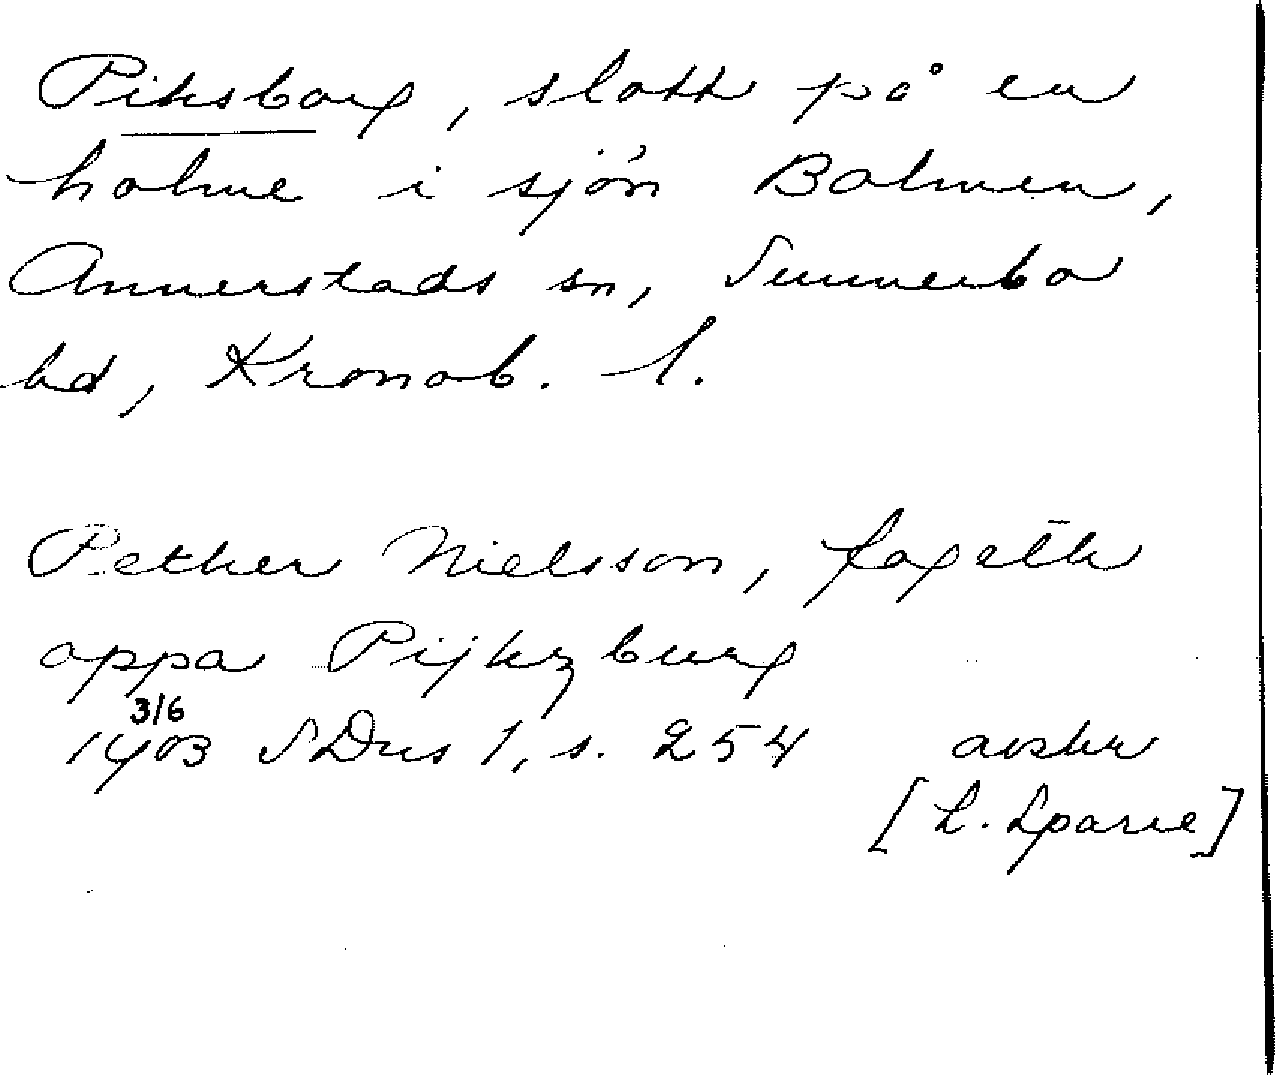 Piksborg, slott på en
holme i sjön Bolmen,
Annerstads sn, Sunnerbo
hd, Kronob. l.
Pether Nielsson, fogeth
oppa Pijkzburg
3/6
1403 SDns 1, s. 254 avskr
[L. Sparre]